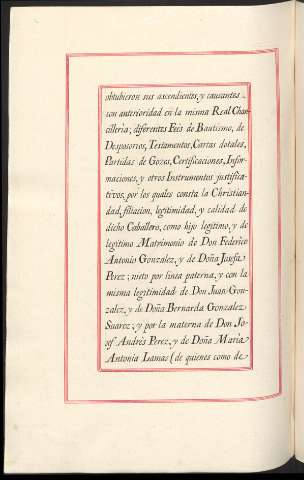 obtubieron sus ascendientes, y causantes
con anterioridad en la misma Real Chan-
cilleria; diferentes Feés de Bautismo, de
Desposorios, Testamentos, Cartas dotales,
Partidas de Gozes, Certificaciones, Infor-
maciones, y otros Instrumentos justifica-
tivos, por los quales consta la Christian-
dad, filiacion, legitimidad, y calidad de
dicho Caballero, como hijo legitimo, y de
legitimo Matrimonio de Don Federico
Antonio Gonzalez, y de Doña Josefa
Perez; nieto por linea paterna, y con la
misma legitimidad de Don Juan Gon-
zalez, y de Doña Bernarda Gonzalez
Suarez; y por la materna de Don Jo-
sef Andrés Perez, y de Doña Maria
Antonia Lamas (de quienes como de